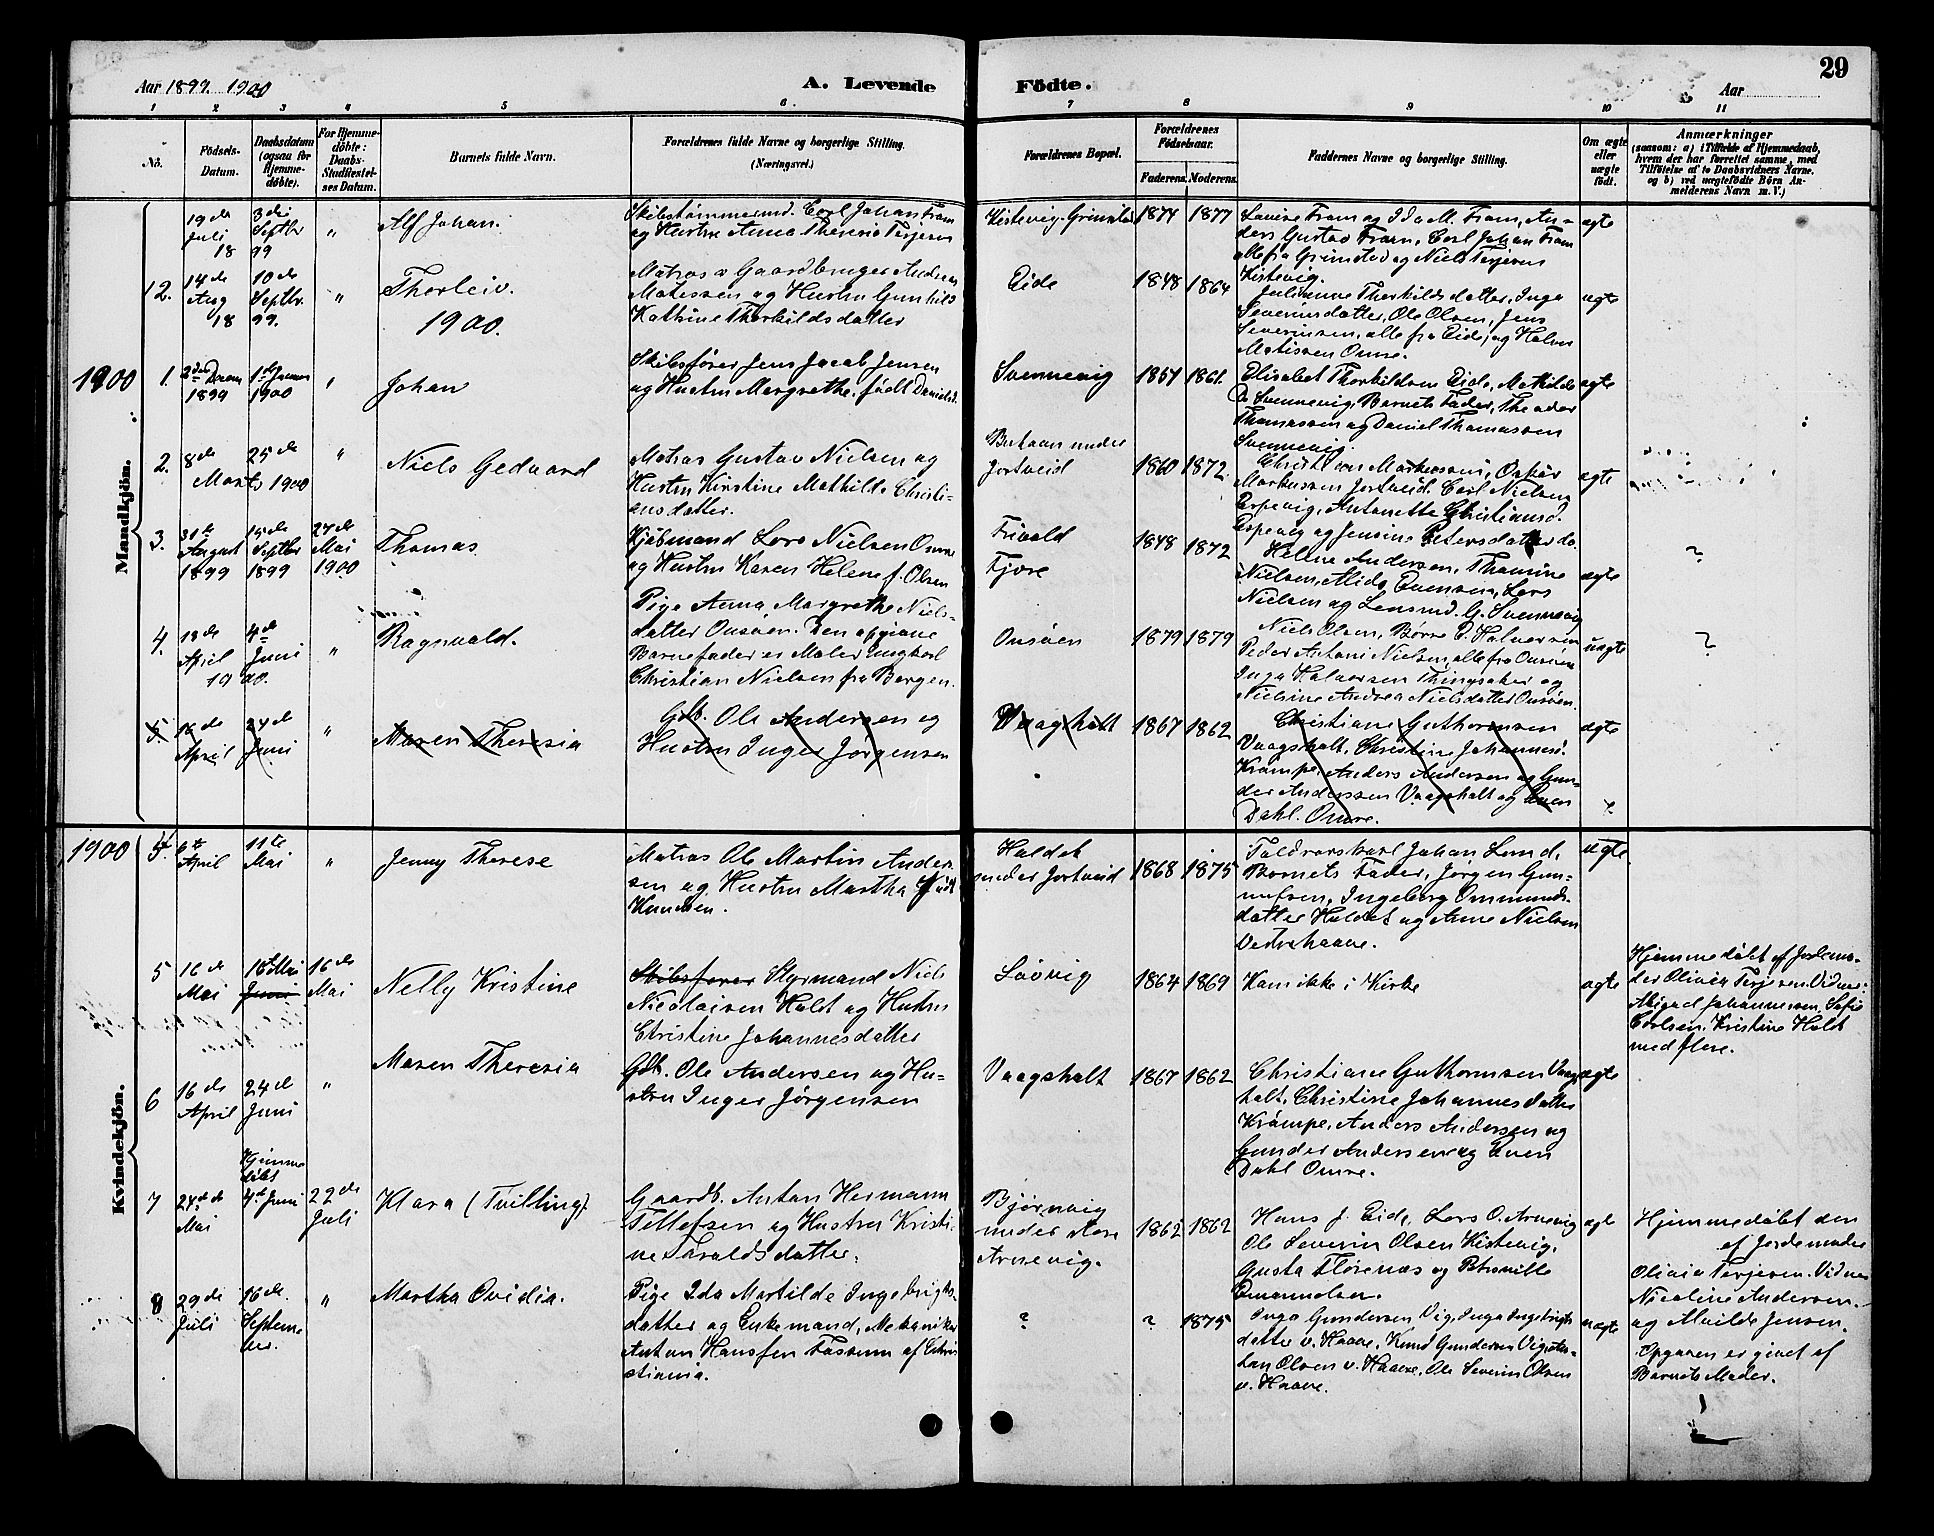 29
Aar 1899. 1900 A. Levende Födte. Aar
1 2 3 4 5 6 7 8 9 10 11
No. Födsels-Datum. Daabsdatum (ogsaa for Hjemmedöbte). For Hjemmedöbte: Daabs-Stadfæstelses Datum. Barnets fulde Navn. Forældrenes fulde Navne og borgerlige Stilling. (Næringsvei.) Forældrenes Bopæl. Forældrenes Födselsaar. Faderens. Moderens. Faddernes Navne og borgerlige Stilling. Om ægte eller uægte födt. Anmærkninger (saasom: a) i Tilfælde af Hjemmedaab, hvem der har forrettet samme, med Tilföielse af to Daabsvidners Navne, og b) ved uægtefödte Börn Anmelderens Navn m. V.)
Mandkjön.
19de Juli 1899
3die Septbr
"
Alf Johan.
Skibstømmermd. Carl Johan Fram
og Hustru Anna Theresia Terjesen
Kistevig, Grimstad
1874 1877
Louise Fram og Ida M. Fram, An-
ders Gustav Fram, Carl Johan Fram
alle fra Grimstad og Niels Terjesen
Kistevig.
ægte
12. 14de Aug 1899
10de Septbr.
"
Thorleiv.
Matros o Gaardbruger Andreas
Matessen og Hustru Gunhild
Kathrine Thorkildsdatter
Eide
1848 1864
Julianne Thorkildsdatter, Inga
Severinsdatter, Ole Olsen, Jens
Severinsen, alle fra Eide, og Halvor
Matissen Omre.
ægte
1900.
1900
1. 2den Decem 1899
1ste Januar 1900
"
Johan
Skibsfører Jens Jacob Jensen
og Hustru Margrethe, født Danielsd.
Svennevig
1857 1861.
Elisabet Thorkildsen Eide, Mathilde
D. Svennevig, Barnets Fader, Theodor
Thomassen og Daniel Thomassen
Svennevig.
ægte
2. 8de Marts 1900
25de
"
Niels Gedvard
Matros Gustav Nielsen og
Hustru Kirstine Mathilde Christi-
ansdatter.
under
Jortveid
1860 1872.
Markussen Jortveid. Carl Nielsen
Espevig, Antonette Christiansd.
Espevig og Jensine Petersdatter do.
ægte
3. 31te August 1899
15de Septbr 1899
27de Mai 1900
Thomas
Kjøbmand Lars Nielsen Omre
og Hustru Karen Helene f. Olsen
Frivold
Fjære
1848 1872
Helene Andersen, Thomine
Nielsen, Alida Evensen, Lars
Nielsen og Lensmd. G. Svennevig
ægte
?
4. 18de April 1900.
4de Juni
"
Ragnvald.
Pige Anna Margrethe Niels-
datter Omsøen. Den opgivne
Barnefader er Maler Ungkarl
Christian Nielsen fra Bergen.
Omsøen
1879 1879
Niels Olsen, Børre P. Halvorsen
Peder Antoni Nielsen, alle fra Omsøen
Inga Halvorsen Thingsaker og
Nielsine Andrea Nielsdatter Omsøen.
uægte
?
5. 16de April
24de Juni
"
Maren Theresia
Gdb. Ole Andersen og
Hustru Inger Jørgensen
Vaagsholt
1867 1862
Christiane Guthormsen
Vaagsholt, Christine Johannesd.
Krampe, Anders Andersen og Gun-
der Anderssen Vaagsholt og Even
Dahl. Omre.
ægte
Kvindekjön.
1900
6te April
11te Mai
"
Jenny Therese
Matros Ole Martin Ander-
sen og Hustru Martha Født
Knudsen.
Holdet
under Jortveid
1868 1875
Toldvorskarl Johan Lund,
Barnets Fader, Jørgen Gun-
nufsen, Ingeborg Ommunds-
datter Holdet og Anne Nielsen
Vedrehaave.
ægte
5 16de Mai
16de Mai Juni
16de Mai
Nelly Kristine
Skibsfører Styrmand Niels
Nicolaisen Holdt og Hustru
Christine Johannesdatter
Løvvig
1864 1869
Kom ikke i Kirke
ægte
Hjemmedøbt af Jordemo-
der Olivia Terjesen. Vidner:
Abigael Johannessen, Sofie
Carlsen, Kristine Holdt
med flere.
6 16de April
24de Juni
"
Maren Theresia
Gdb. Ole Andersen og Hu-
stru Inger Jørgensen
Vaagsholt
1867 1862
Christiane Guthormsen Vaags
holt, Christine Johannesdatter
Krampe, Anders Andersen og
Gunder Andersen og Even
Dahl Omre.
ægte
7 24de Mai
Hjemme døbt 4de Juni
22de Juli
Klara (Tvilling)
Gaardb. Anton Hermann
Tellefsen og Hustru Kristi-
ne Taraldsdatter.
Bjørnvig
under store
Arnevig.
1862 1862
Hans J. Eide, Lars O. Arnevig
Ole Severin Olsen Kistevig,
Gusta Florenæs og Petronille
Emanuelsen.
ægte
Hjemmedøbt den
af Jordemoder
Olivia Terjesen. Vidner
Nicoline Andersen.
og Alvilde Jensen.
8 29de Juli
16de September
"
Martha Ovidia.
Pige Ida Martilde Ingebrigts-
datter og Enkemand, Mekaniker
Anton Hansen Fossum af Chri
stiania.
?
? 1875
Inga Gundersen Vig, Inga Ingebrigts
datter v. Haave, Knud Gundersen Vig,
Olsen v. Haave, Ole Severin Olsen
v. Haave.
uægte
Opgaven er givet af
Barnets Moder.